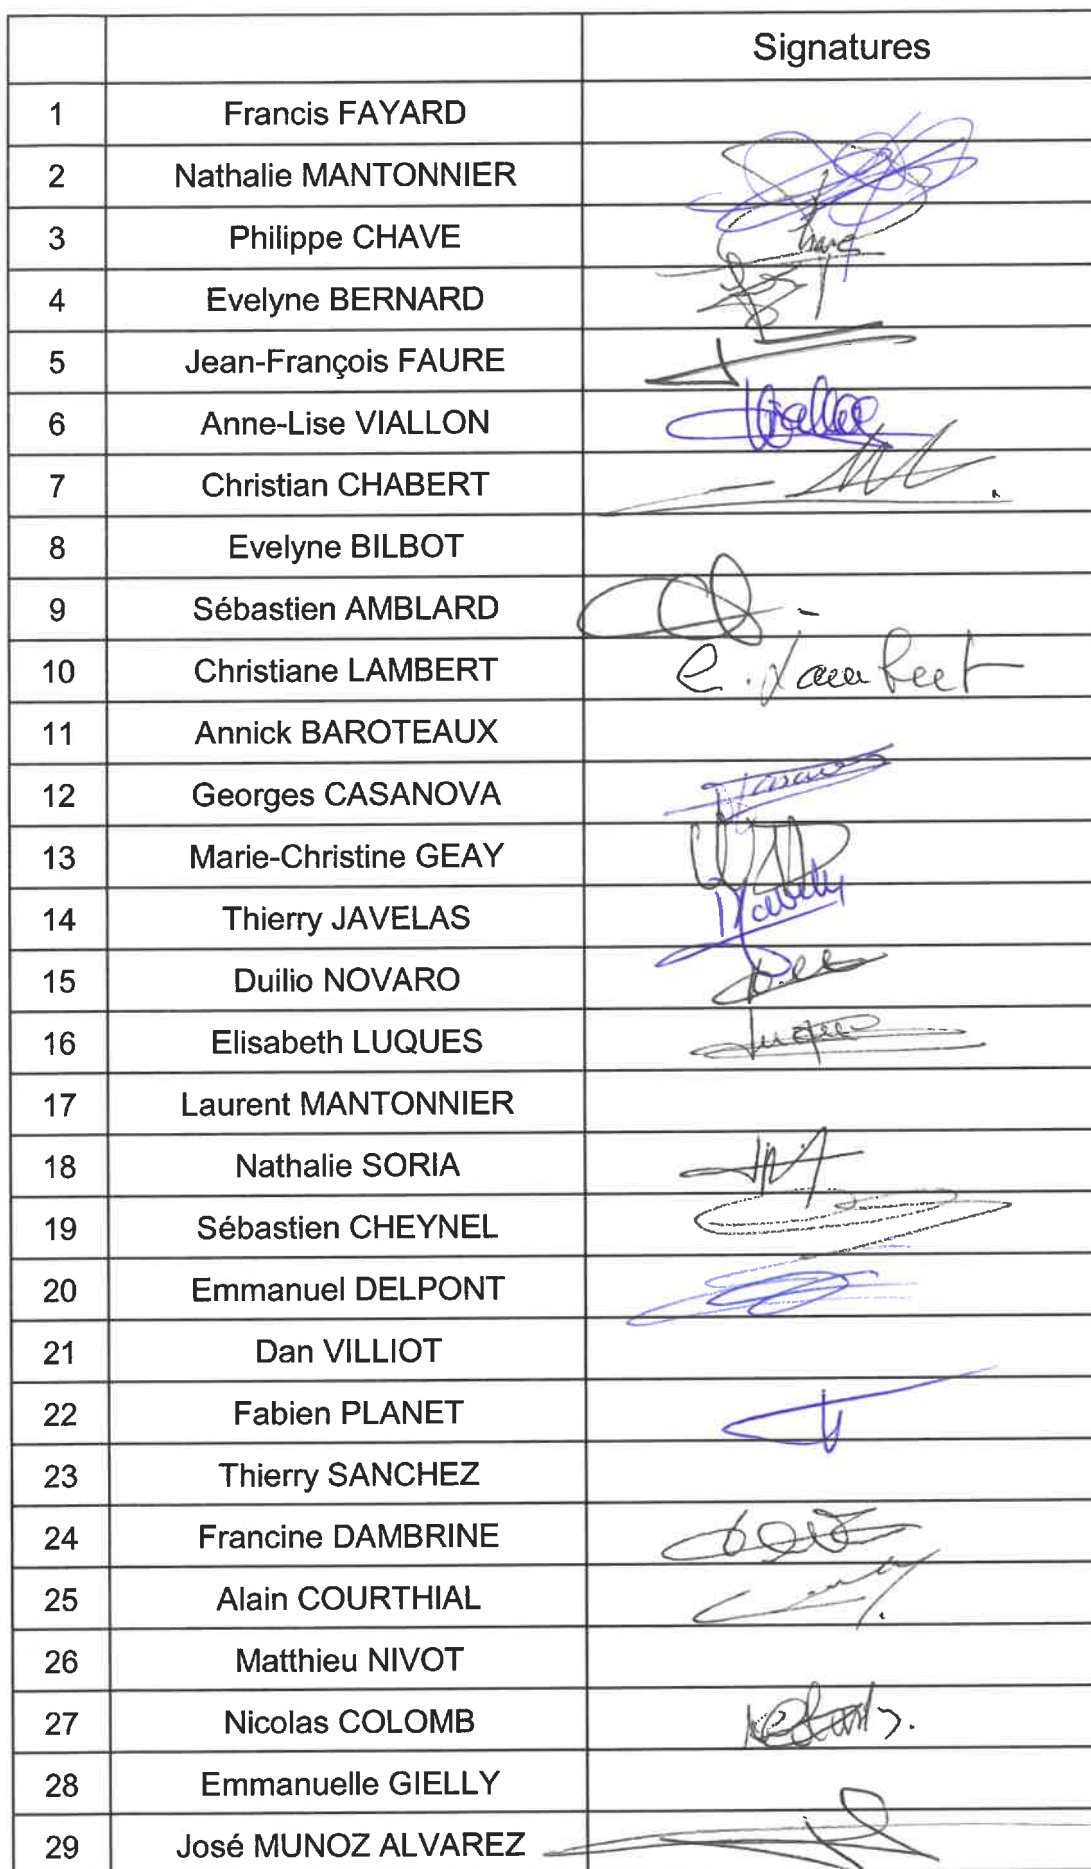 Signatures
1 Francis FAYARD
2 Nathalie MANTONNIER
3 Philippe CHAVE
4 Evelyne BERNARD
5 Jean-François FAURE
6 Anne-Lise VIALLON
7 Christian CHABERT
8 Evelyne BILBOT
9 Sébastien AMBLARD
10 Christiane LAMBERT C. Lambert
11 Annick BAROTEAUX
12 Georges CASANOVA
13 Marie-Christine GEAY
14 Thierry JAVELAS
15 Duilio NOVARO
16 Elisabeth LUQUES
17 Laurent MANTONNIER
18 Nathalie SORIA
19 Sébastien CHEYNEL
20 Emmanuel DELPONT
21 Dan VILLIOT
22 Fabien PLANET
23 Thierry SANCHEZ
24 Francine DAMBRINE
25 Alain COURTHIAL
26 Matthieu NIVOT
27 Nicolas COLOMB
28 Emmanuelle GIELLY
29 José MUNOZ ALVAREZ